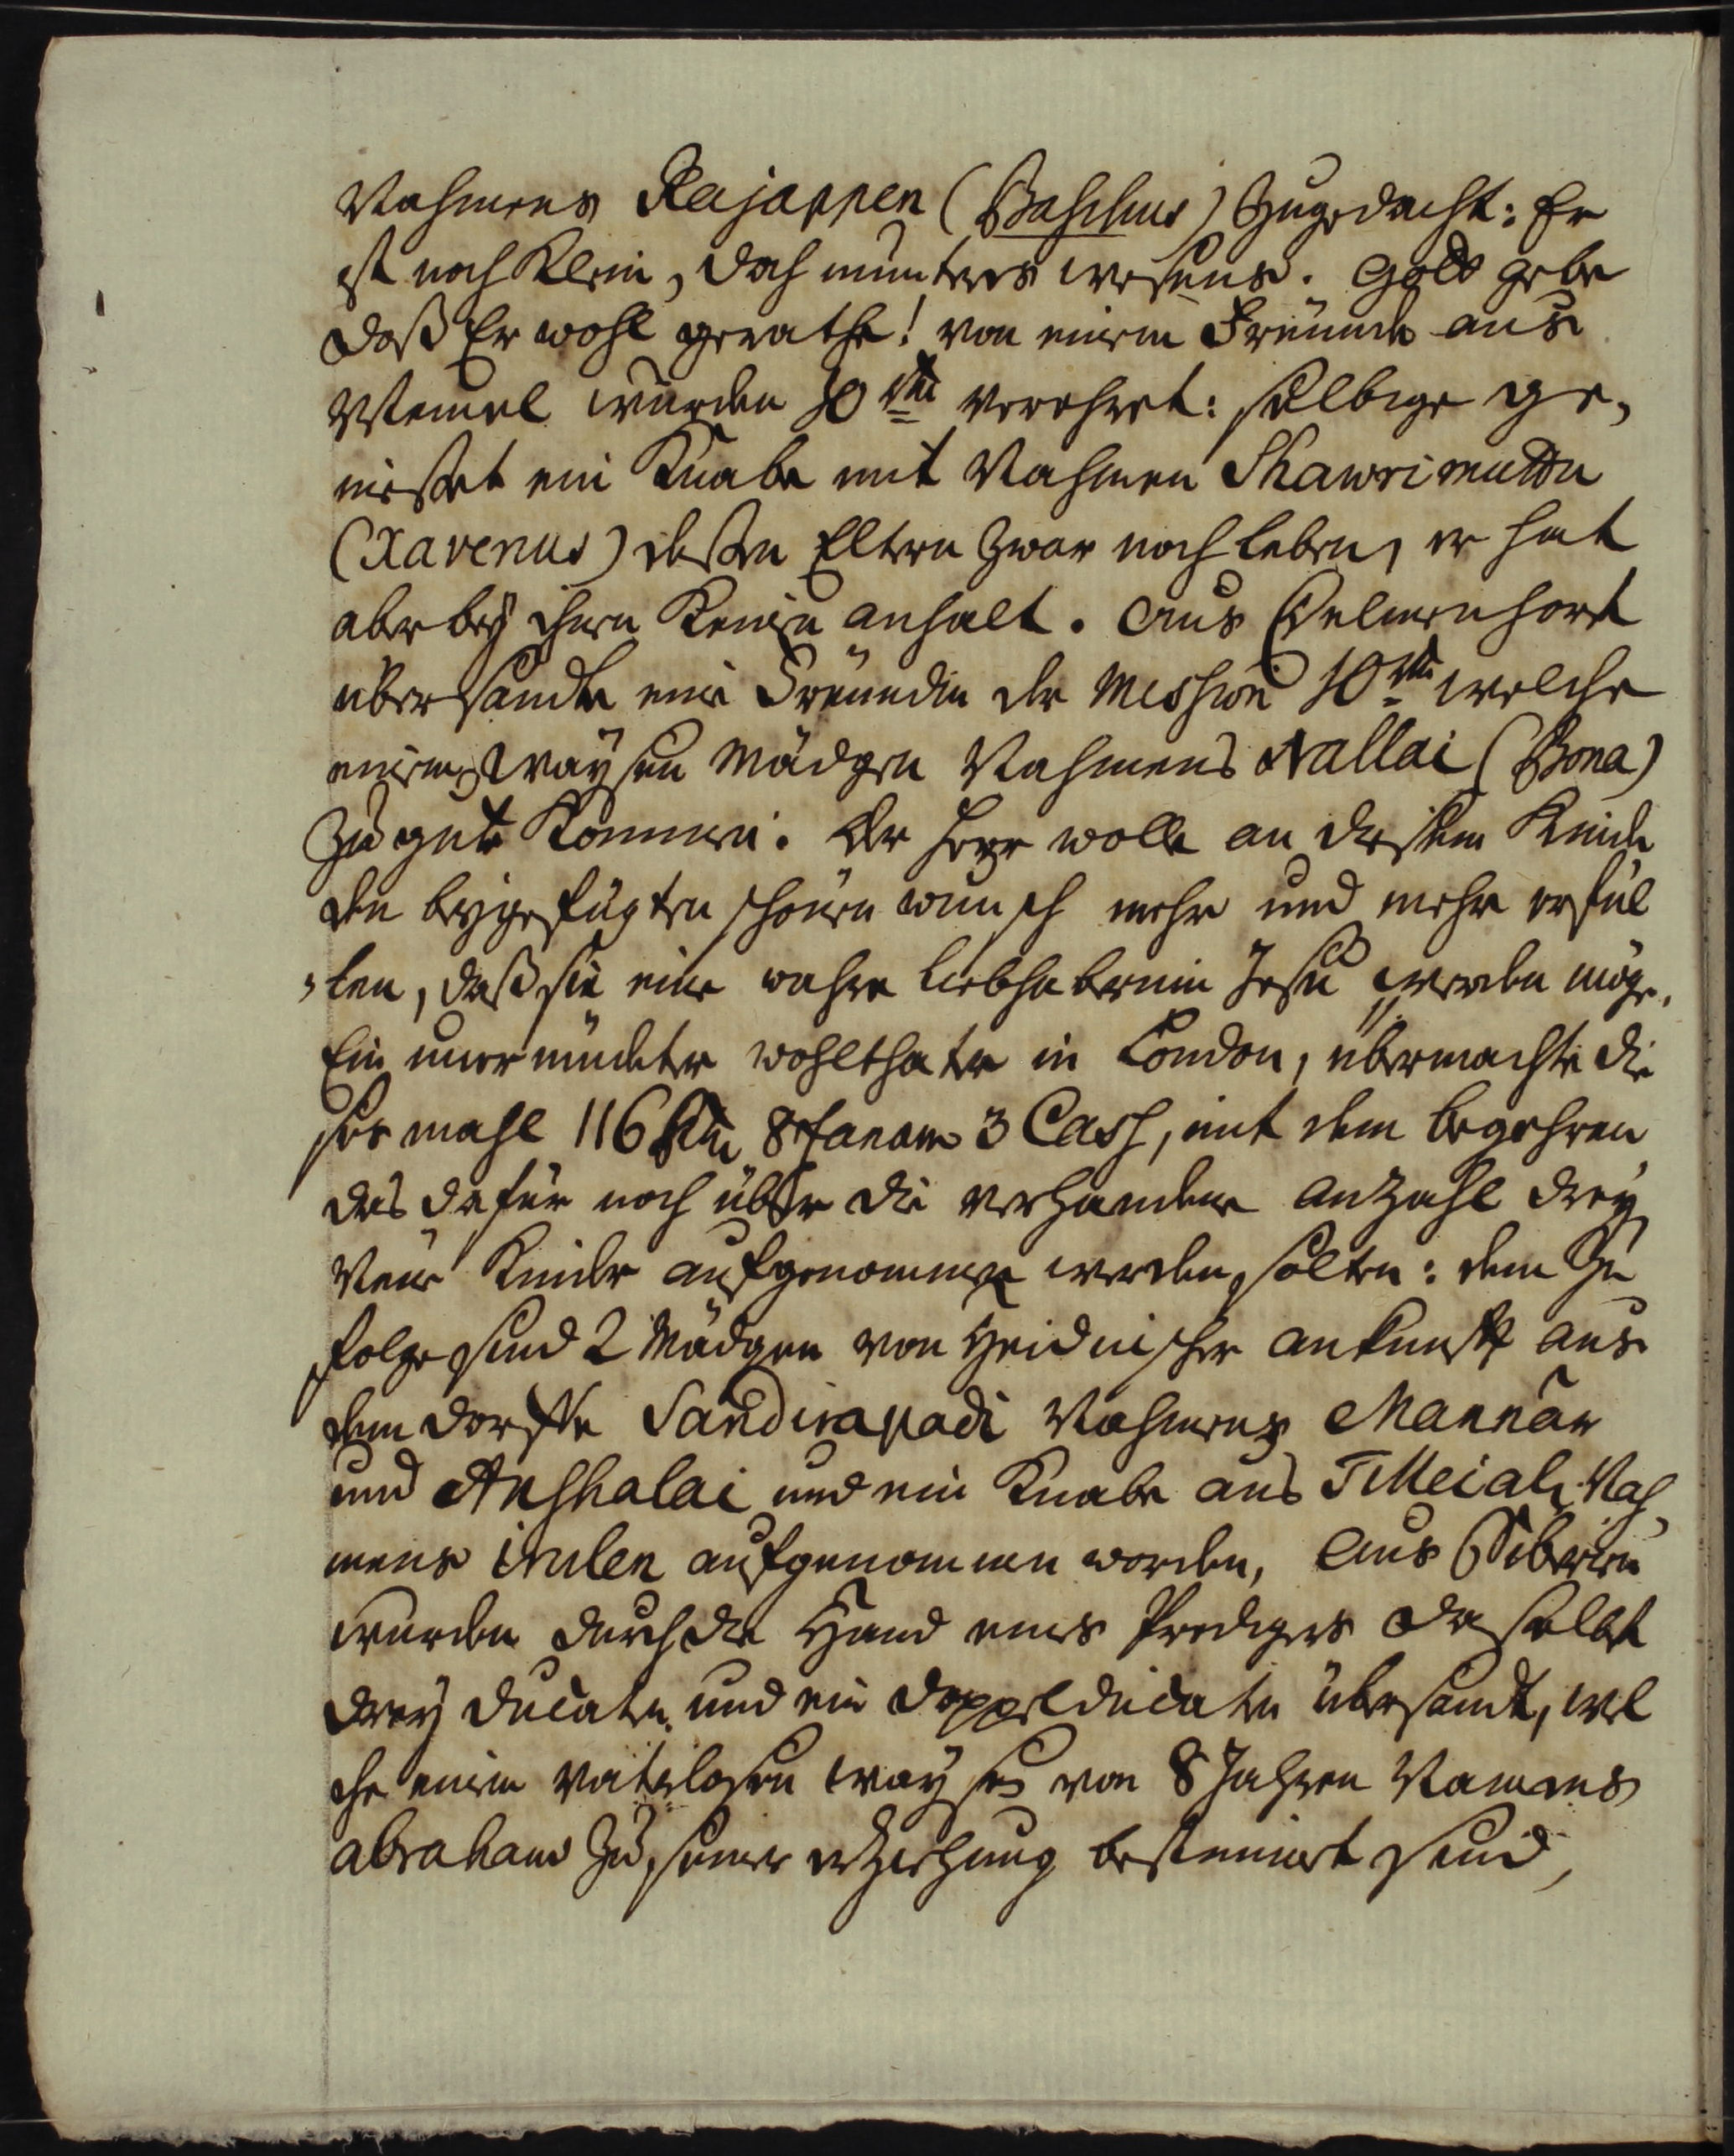 Nahmens Rajappen (Basilius) zugedacht: Er
ist noch klein, doch muntres wesens. Gott gebe
daß Er wohl gerathe! von einem Freunde aus
Memel wurden 10 rth verehret: selbige ge,
niesset ein Knabe mit Nahmen Shawrimuttu
(Xaverius) dessen Eltern zwar noch leben, er hat
aber bey ihnen keinen anhalt. Aus Delmenhorst
übersandte eine Freundin der Mission 10 rth welche
einem Waysen Mädgen Nahmens Nallai (Bona)
zu gute kommen. der Herr wolle an diesem Kinde
den beygefügten schönen wunsch mehr und mehr erfül
,len, daß sie eine wahre Liebhaberinn Jesu werden möge.
Ein unermüdeter wohlthäter in London, übermachte die
ses mahl 116 8 fanam 3 Cash, mit dem begehren
das dafür noch über die vorhandene anzahl drey
Neue Kinder aufgenommen werden solten: dem zu
folge sind 2 Mädgen von Heidnischer ankunfft aus
dem dorffe Sandirapadi Nahmens Mannar
und Anshalai und ein Knabe aus Tilleiali Nah,
mens irulen aufgenommen worden, Aus Siberien
wurden durch die Hand eines Predigers daselbst
drey ducaten und ein doppelducaten übersandt, wel
che einem vaterlosen Waysen von 8 Jahren Namens
Abraham zu seiner erziehung bestimmt sind,